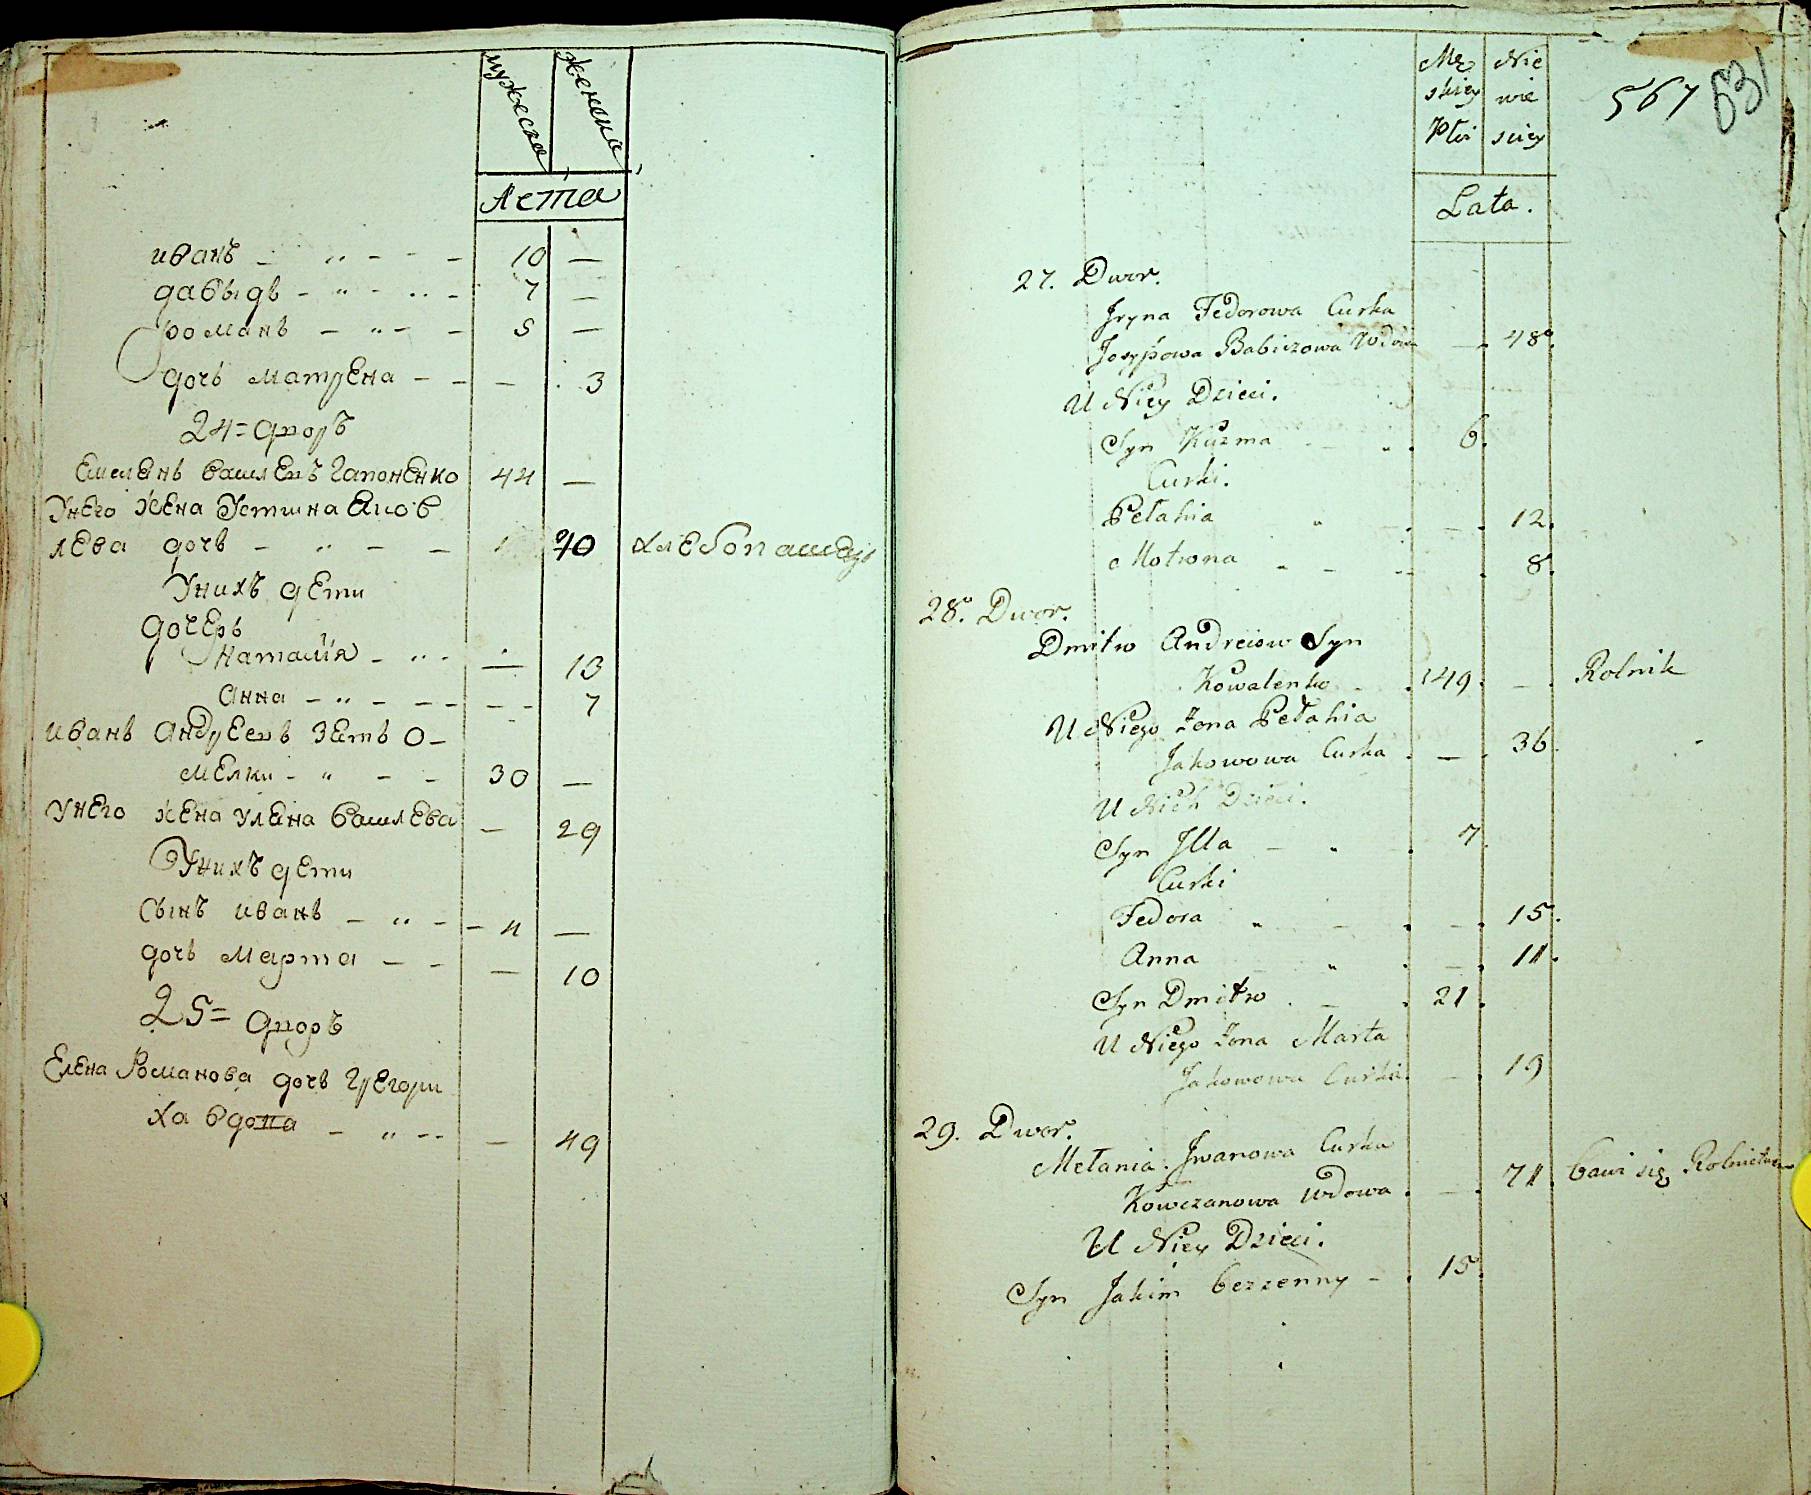 мужеска
женска
Лета
иванъ - „ - - - 10 —
давыдъ - „ - „ - 7 —
романъ - „ - - 5 —
дочь матрена - - — 3
24= дворъ
Емелянъ василевъ Гапоненко 44 —
Унего жена Устина Яков
лева дочь - „ - - 40 хлебопашецъ
Унихъ дети
дочеръ
Наталия - „ - — 13
Анна - „ - - - - - 7
иванъ андреевъ зять О-
мелки - „ - - 30 —
Унего жена уляна василева — 29
Унихъ дети
Сынъ иванъ - „ - - 4 —
дочь марта - - — 10
25= дворъ
Елена Романова дочь Грегори
ха вдова - „ - - — 49
Mę Nie
skiey wie
Płci sciey
567
631
Lata.
27. Dwor.
Jryna Fedorowa Curka
Josypowa Babiczowa Wdow — 48.
U Niey Dzieci.
Syn Kuzma - - . 6.
Curki.
Pełahia „ - . - . 12.
Motrona - - - . 8.
28. Dwor.
Dmitro Andreiow Syn
Kowalenko - . 49. - . Rolnik
U Niego Żona Pełahia
Jakowowa Curka . — . 36.
U Nich Dzieci.
Syn Jlla - „ . 7.
Curki
Fedora „ - . - . 15.
Anna - „ . - . 11.
Syn Dmitro . - . 21.
U Niego Żona Marta
Jakowowa Curka. - . 19
29. Dwor.
Mełania Jwanowa Curka
Kowczanowa wdowa . — . 71. bawi się Rolnictwem
U Niey Dzieci.
Syn Jakim bezzenny - . 15.